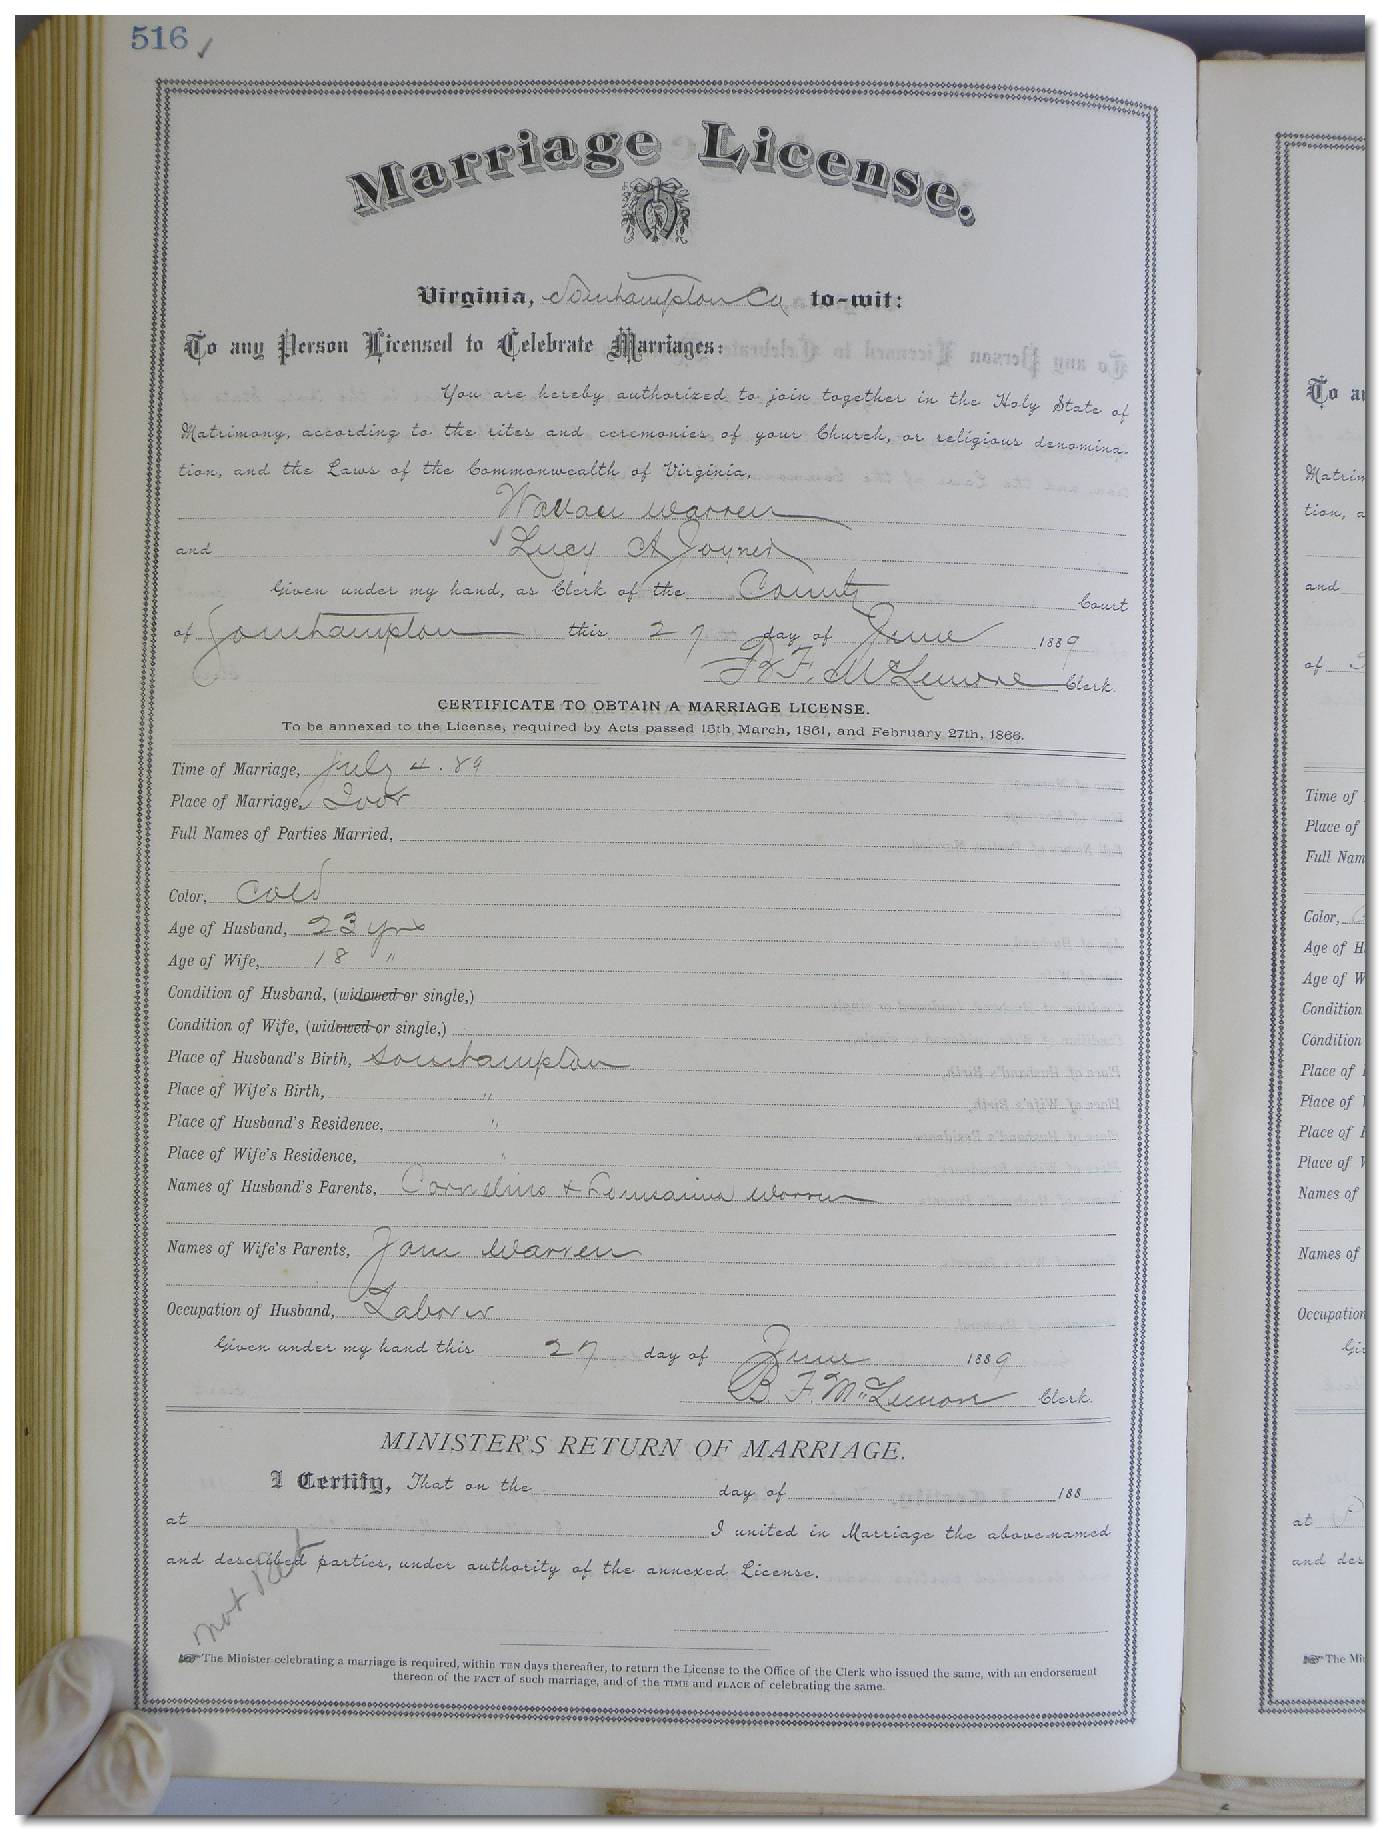 516
Marriage License.
Virginia, Southampton Co to-wit:
To any Person Licensed to Celebrate Marriages:
You are hereby authorized to join together in the Holy State of
Matrimony, according to the rites and ceremonies of your Church, or religious denomina-
tion, and the Laws of the Commonwealth of Virginia,
Wallace Warren
and Lucy A Joyner
Given under my hand, as Clerk of the County Court
of Southampton this 27 day of June 1889
B. F. McLemore Clerk.
CERTIFICATE TO OBTAIN A MARRIAGE LICENSE.
To be annexed to the License, required by Acts passed 15th March, 1861, and February 27th, 1866.
Time of Marriage, July 4. 89
Place of Marriage, Ivor
Full Names of Parties Married,
Color, Cold
Age of Husband, 23 yrs
Age of Wife, 18 "
Condition of Husband, (widowed or single,)
Condition of Wife, (widowed or single,)
Place of Husband's Birth, Southampton
Place of Wife's Birth, "
Place of Husband's Residence, "
Place of Wife's Residence, "
Names of Husband's Parents, Cornelius & Warren
Names of Wife's Parents, Jane Warren
Occupation of Husband, Laborer
Given under my hand this 27 day of June 1889
B F. McLemore Clerk.
MINISTER'S RETURN OF MARRIAGE.
I Certify, That on the day of 188
at I united in Marriage the above-named
and described parties, under authority of the annexed License.
not
The Minister celebrating a marriage is required, within TEN days thereafter, to return the License to the Office of the Clerk who issued the same, with an endorsement
thereon of the FACT of such marriage, and of the TIME and PLACE of celebrating the same.
To a
Matrim
tion, a
and
of
Time of
Place of
Full Nam
Color,
Age of H
Age of W
Condition
Condition
Place of
Place of
Place of
Place of
Names of
Names of
Occupation
Gi
at
and des
The Mi